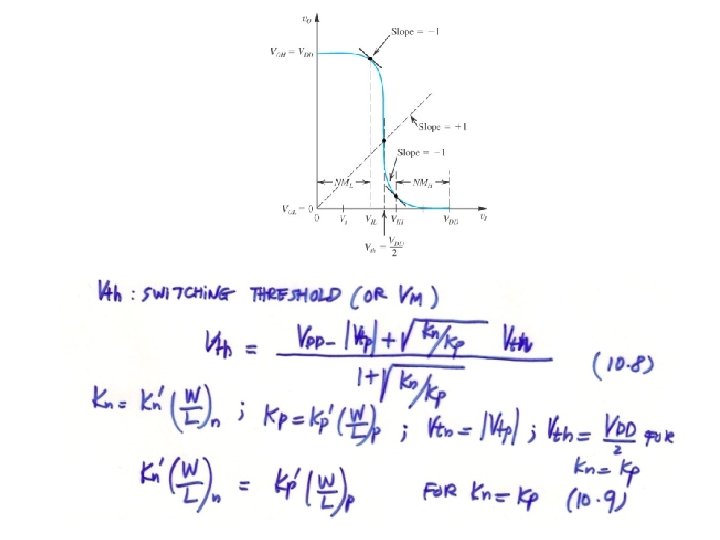 v_O
Slope = −1
V_OH = V_DD
Slope = +1
Slope = −1
NM_L NM_H
V_OL = 0
0 V_t V_IL V_IH V_DD v_I
V_th = V_DD/2
Vth : SWITCHING THRESHOLD (OR VM)
Vth = (VDD − |Vtp| + √(Kn/Kp) Vtn) / (1 + √(Kn/Kp)) (10.8)
Kn = Kn'(W/L)n ; Kp = Kp'(W/L)p ; Vtn = |Vtp| ; Vth = VDD/2 FOR
Kn = Kp
Kn'(W/L)n = Kp'(W/L)p FOR Kn = Kp (10.9)